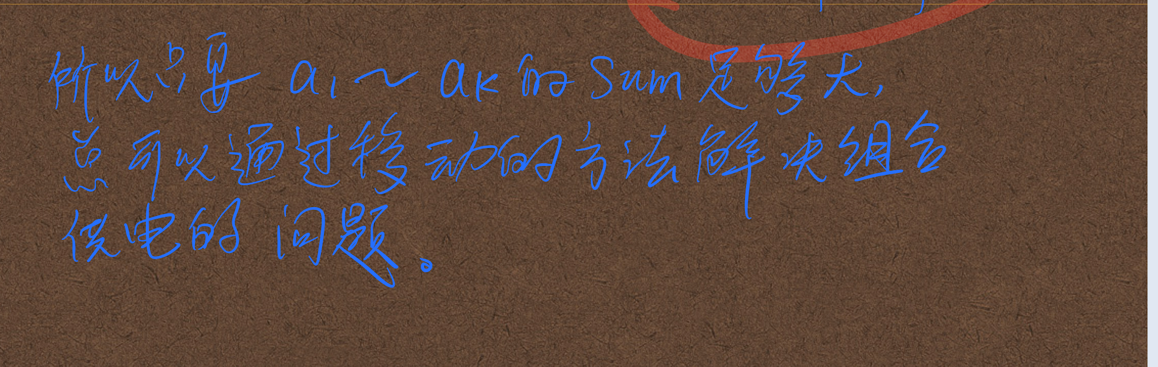 所以只要 a₁~aₖ的Sum足够大,
总可以通过移动的方法解决组合
供电的问题。